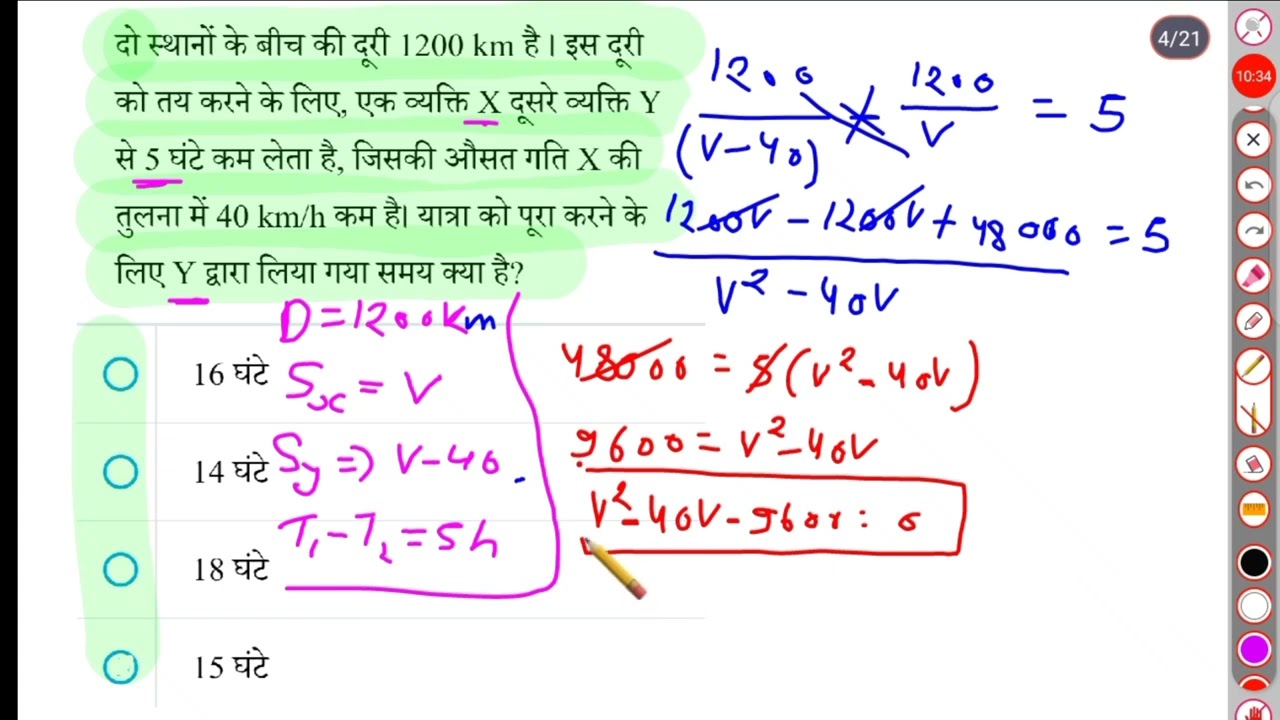 दो स्थानों के बीच की दूरी 1200 km है। इस दूरी
को तय करने के लिए, एक व्यक्ति X दूसरे व्यक्ति Y
से 5 घंटे कम लेता है, जिसकी औसत गति X की
तुलना में 40 km/h कम है। यात्रा को पूरा करने के
लिए Y द्वारा लिया गया समय क्या है?
16 घंटे
14 घंटे
18 घंटे
15 घंटे
D = 1200 Km
Sx = V
Sy => V-40
T1 - T2 = 5h
1200/(V-40) - 1200/V = 5
1200V - 1200V + 48000 / V² - 40V = 5
48000 = 5(V² - 40V)
9600 = V² - 40V
V² - 40V - 9600 = 0
4/21
10:34